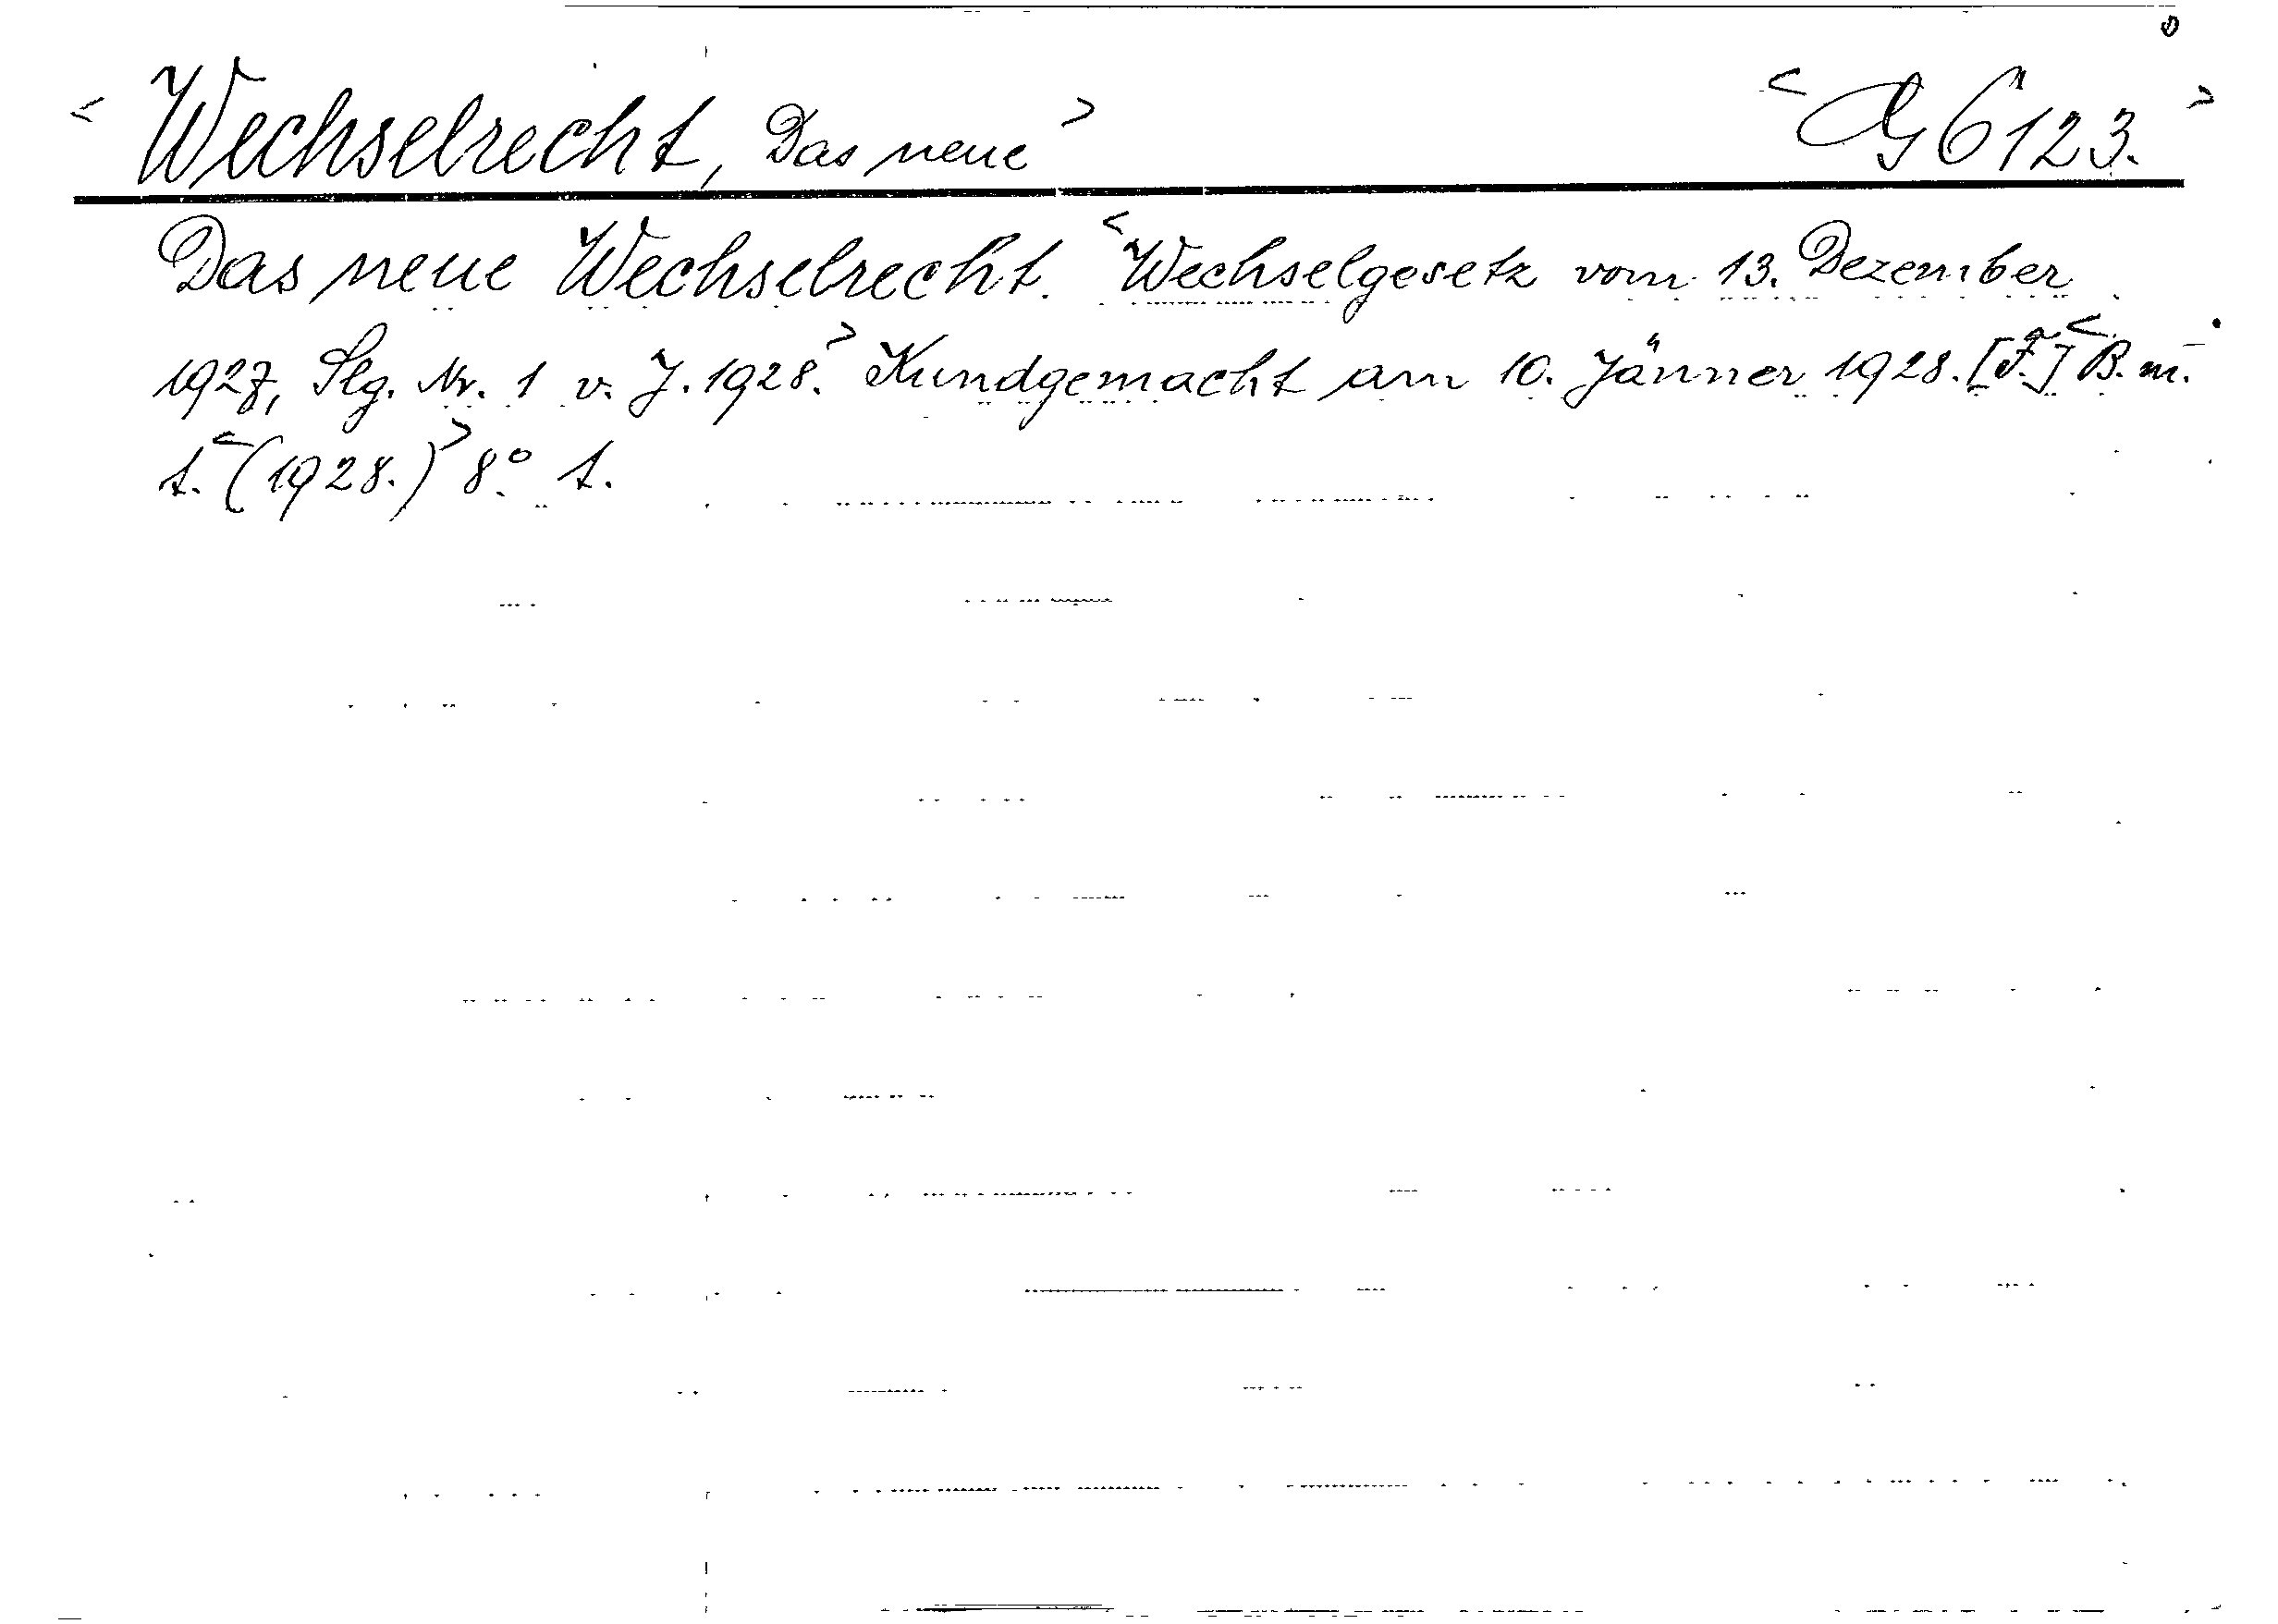 < Wechselrecht, Das neue > < G 6123. >
Das neue Wechselrecht. < Wechselgesetz vom 13. Dezember
1927, Slg. Nr. 1 v. J. 1928. > Kundgemacht am 10. Jänner 1928. [F.] < B. m.
t. < (1928.) > 8° t.